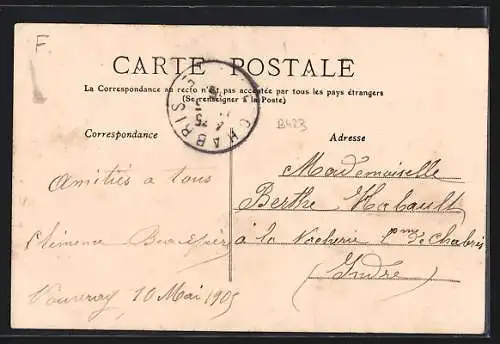 F.
CARTE POSTALE
La Correspondance au recto n'est pas acceptée par tous les pays étrangers
(Se renseigner à la Poste)
CHABRIS
B423
Correspondance
Adresse
Mademoiselle
Berthe Habault
à la Vacherie pme de Chabris
(Indre)
Amitiés a tous
Vouvray 10 Mai 1905